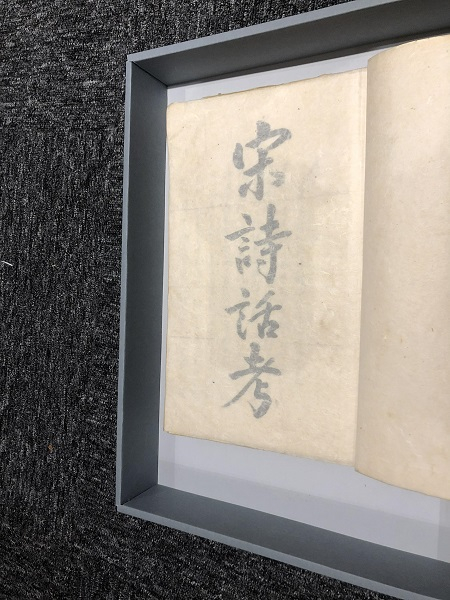 宋詩話考